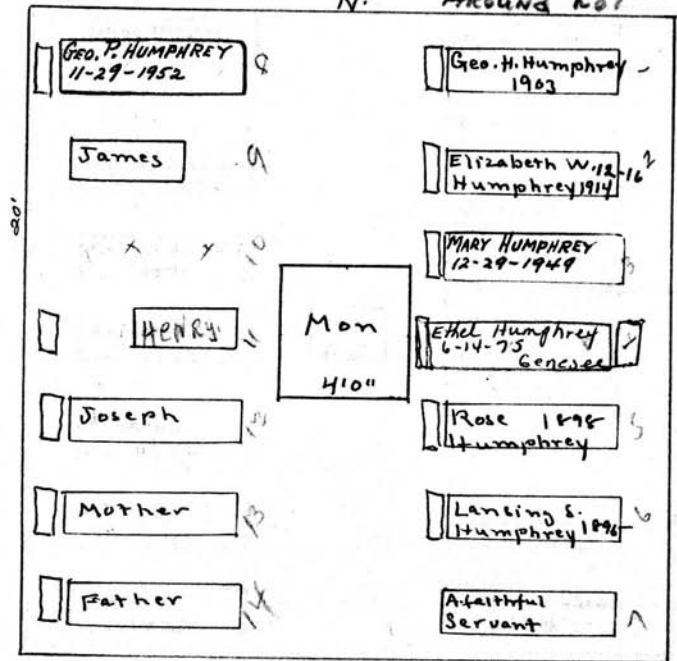 N. AROUND LOT
20'
GEO. P. HUMPHREY
11-29-1952
8
James
9
x x
10
HENRY
11
Joseph
12
Mother
13
Father
14
Mon
4'0"
Geo. H. Humphrey
1903
Elizabeth W. 12-16
Humphrey 1914
2
MARY HUMPHREY
12-29-1949
3
Ethel Humphrey
6-14-75
Genesee
Rose 1898
Humphrey
5
Lansing S.
Humphrey 1896
6
A faithful
Servant
7